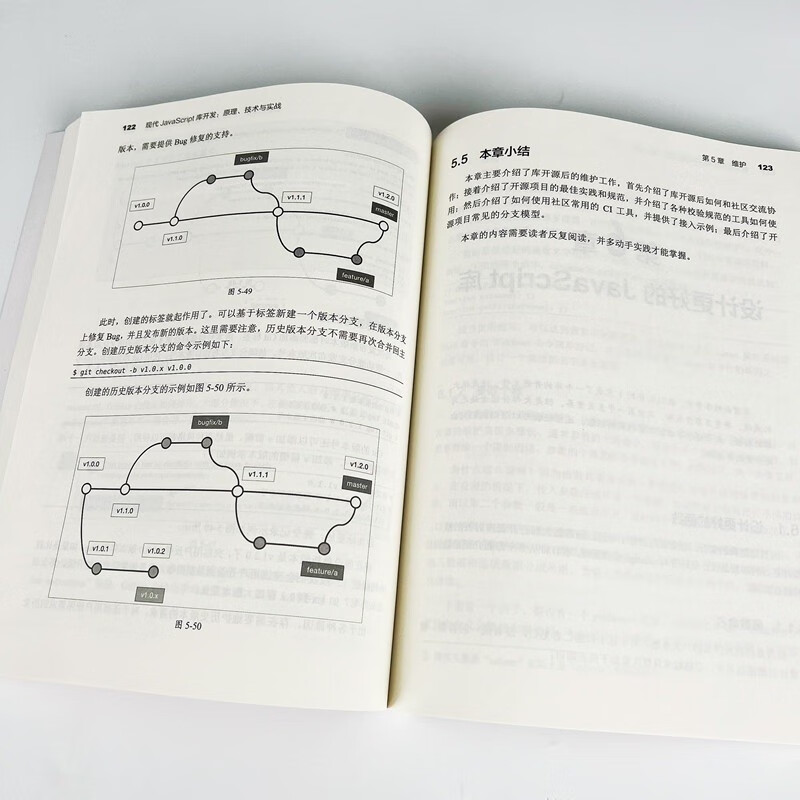 122 现代 JavaScript 库开发：原理、技术与实战
版本，需要提供 Bug 修复的支持。
bugfix/b
v1.0.0
v1.1.1
v1.2.0
master
v1.1.0
feature/a
图 5-49
此时，创建的标签就起作用了。可以基于标签新建一个版本分支，在版本分支
上修复 Bug，并且发布新的版本。这里需要注意，历史版本分支不需要再次合并回主
分支。创建历史版本分支的命令示例如下：
$ git checkout -b v1.0.x v1.0.0
创建的历史版本分支的示例如图 5-50 所示。
bugfix/b
v1.0.0
v1.1.1
v1.2.0
master
v1.1.0
v1.0.1
v1.0.2
feature/a
v1.0.x
图 5-50
第 5 章 维护 123
5.5 本章小结
本章主要介绍了库开源后的维护工作，首先介绍了库开源后如何和社区交流协
作；接着介绍了开源项目的最佳实践和规范，并介绍了各种校验规范的工具如何使
用；然后介绍了如何使用社区常用的 CI 工具，并提供了接入示例；最后介绍了开
源项目常见的分支模型。
本章的内容需要读者反复阅读，并多动手实践才能掌握。
设计更好的 JavaScript 库